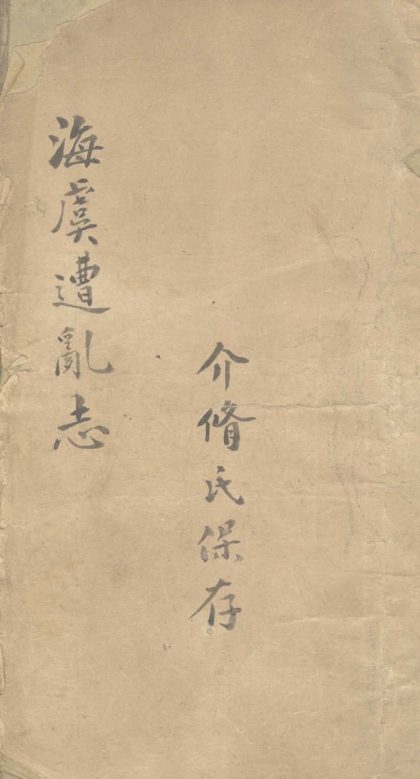 介脩氏保存
海虞遭亂志